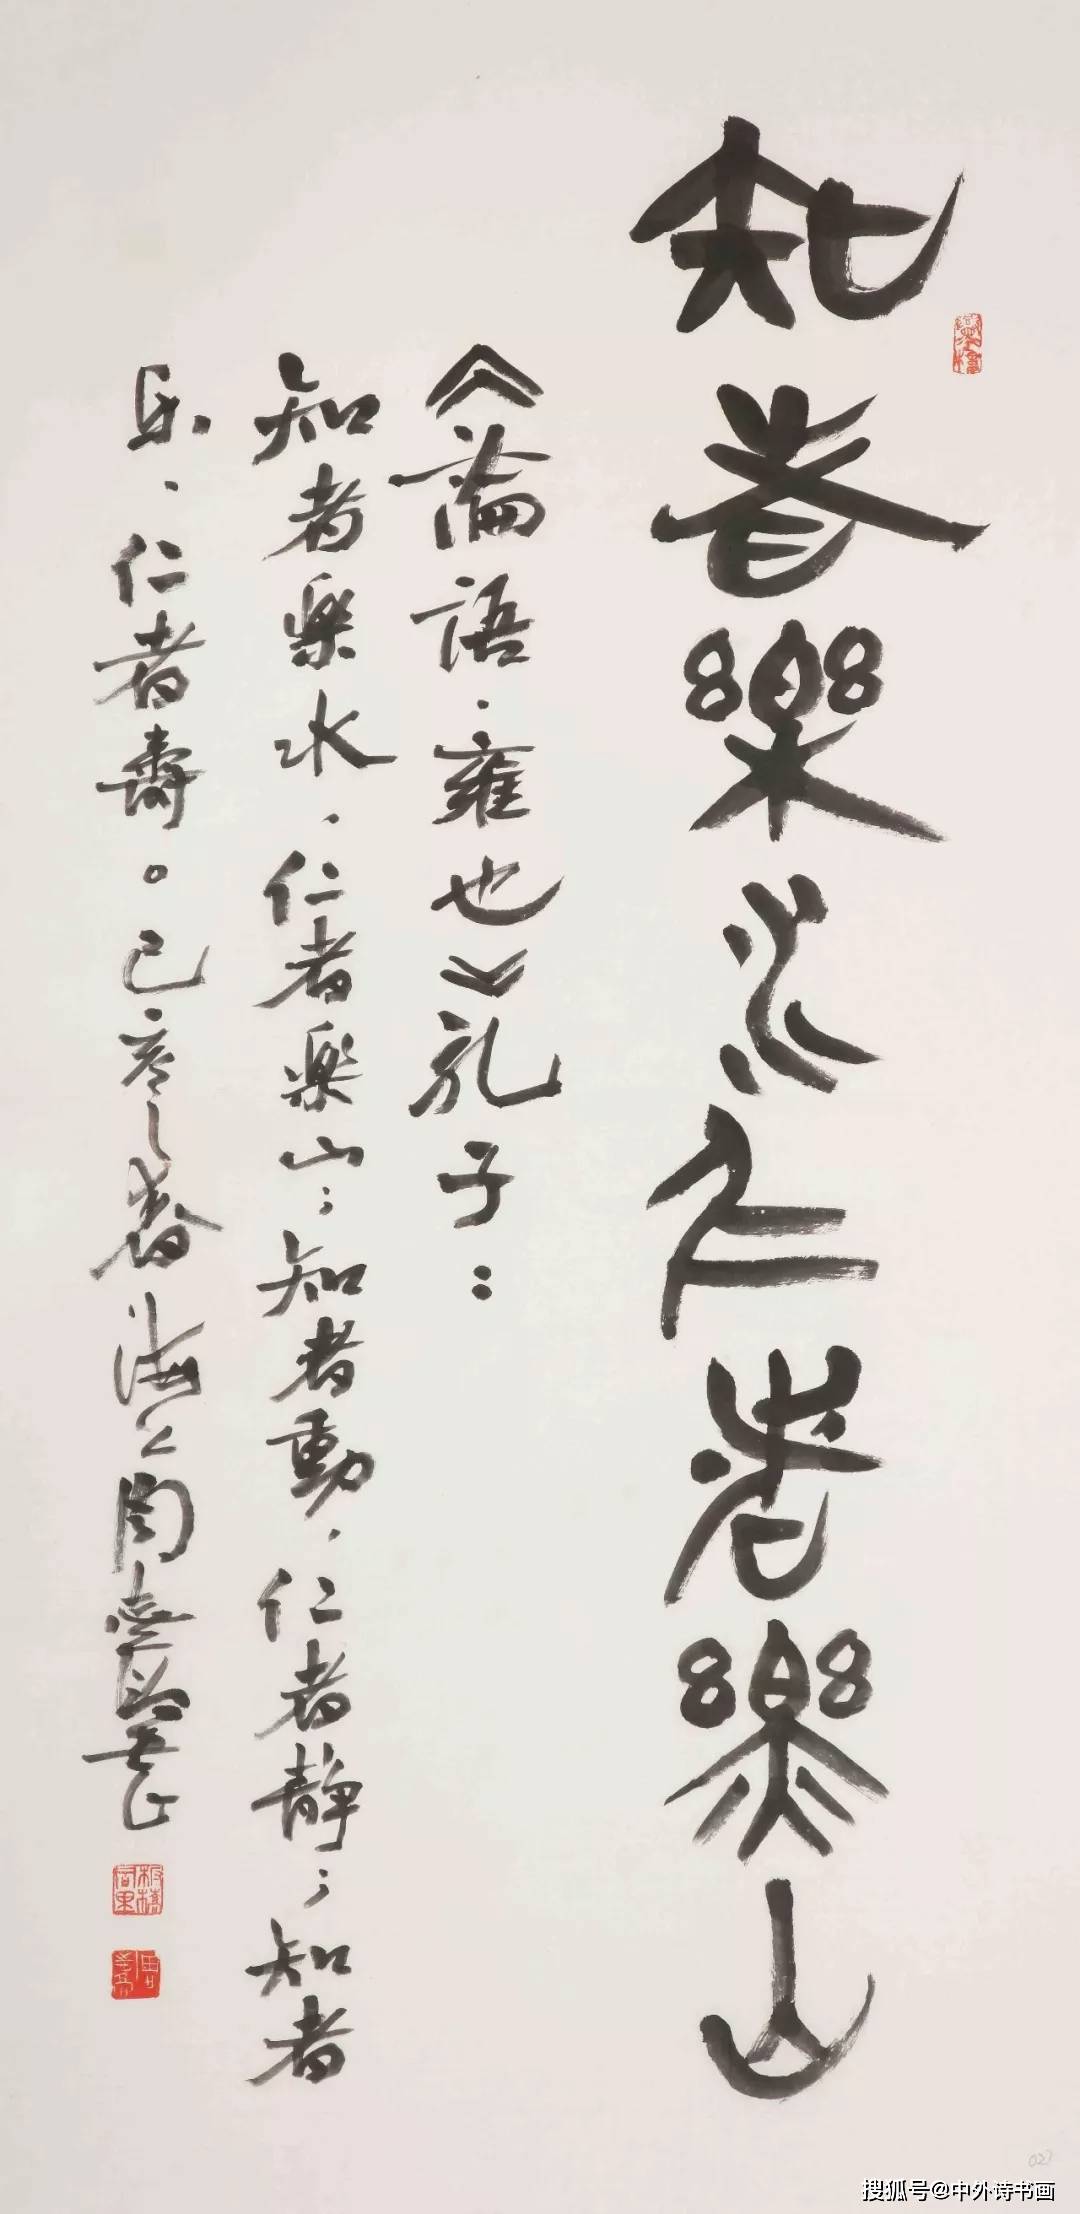 知者樂水仁者樂山
《論語、雍也》孔子：
知者樂水、仁者樂山；知者動、仁者靜；知者
乐、仁者壽。己亥之春海上周
搜狐号@中外诗书画
027